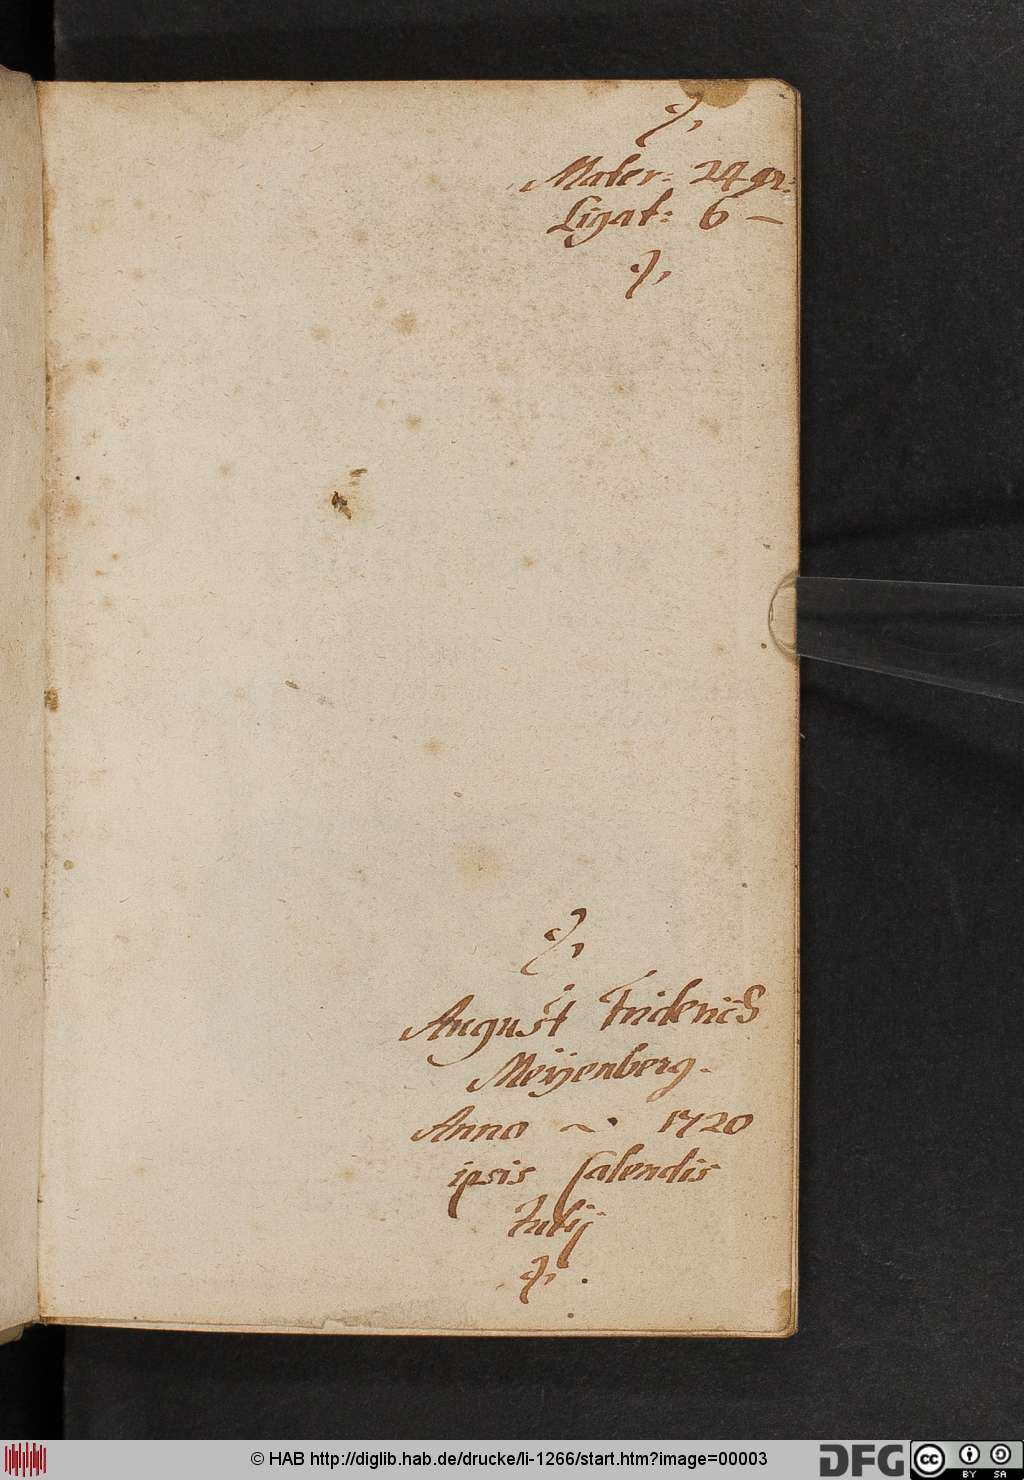 Mater: 24 gr:
Ligat: 6 —
August Frideric9
Meÿenberg.
Anno — · 1720
ipsis Calendis
Julij
© HAB http://diglib.hab.de/drucke/li-1266/start.htm?image=00003
DFG
cc BY SA